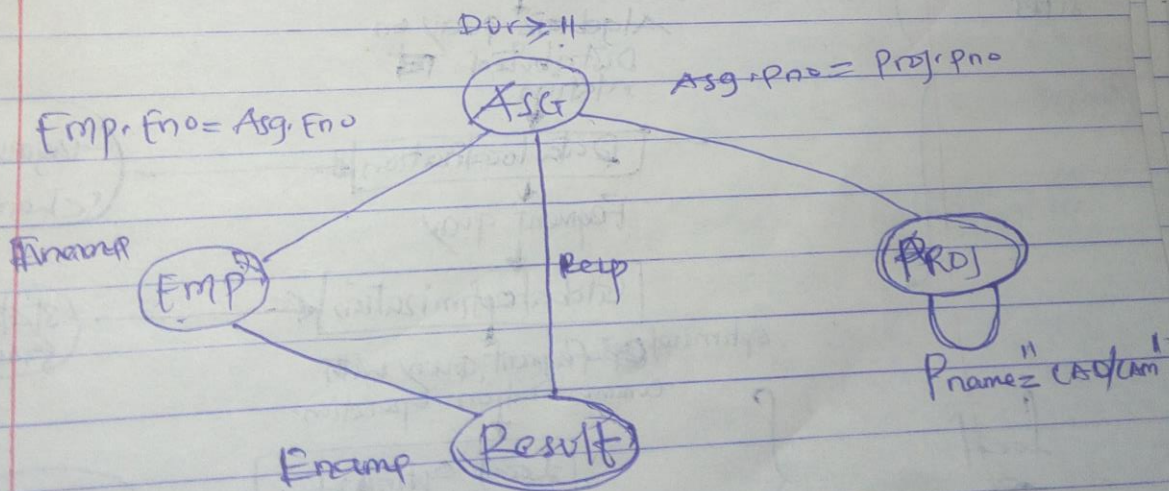 Dur ≥ 11
ASG
Asg.Pno = Proj.pno
Emp.Eno = Asg.Eno
PROJ
EMP
Resp
Pname = "CAD/CAM"
Result